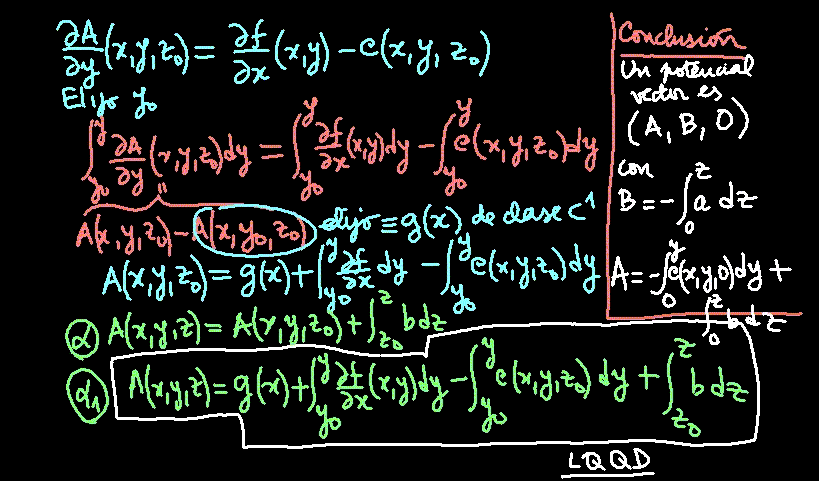 ∂A/∂y (x,y,z₀) = ∂f/∂x (x,y) − c(x,y,z₀)
Elijo y₀
∫_{y₀}^{y} ∂A/∂y (x,y,z₀)dy = ∫_{y₀}^{y} ∂f/∂x (x,y)dy − ∫_{y₀}^{y} c(x,y,z₀)dy
"
A(x,y,z₀) − A(x,y₀,z₀) elijo ≡ g(x) de clase C¹
A(x,y,z₀) = g(x) + ∫_{y₀}^{y} ∂f/∂x dy − ∫_{y₀}^{y} c(x,y,z₀)dy
α) A(x,y,z) = A(x,y,z₀) + ∫_{z₀}^{z} b dz
α₁) A(x,y,z) = g(x) + ∫_{y₀}^{y} ∂f/∂x (x,y)dy − ∫_{y₀}^{y} c(x,y,z₀) dy + ∫_{z₀}^{z} b dz
LQQD
Conclusión
Un potencial
vector es
(A, B, 0)
con
B = −∫_{0}^{z} a dz
A = −∫_{0}^{y} c(x,y,0)dy +
∫_{0}^{z} b dz